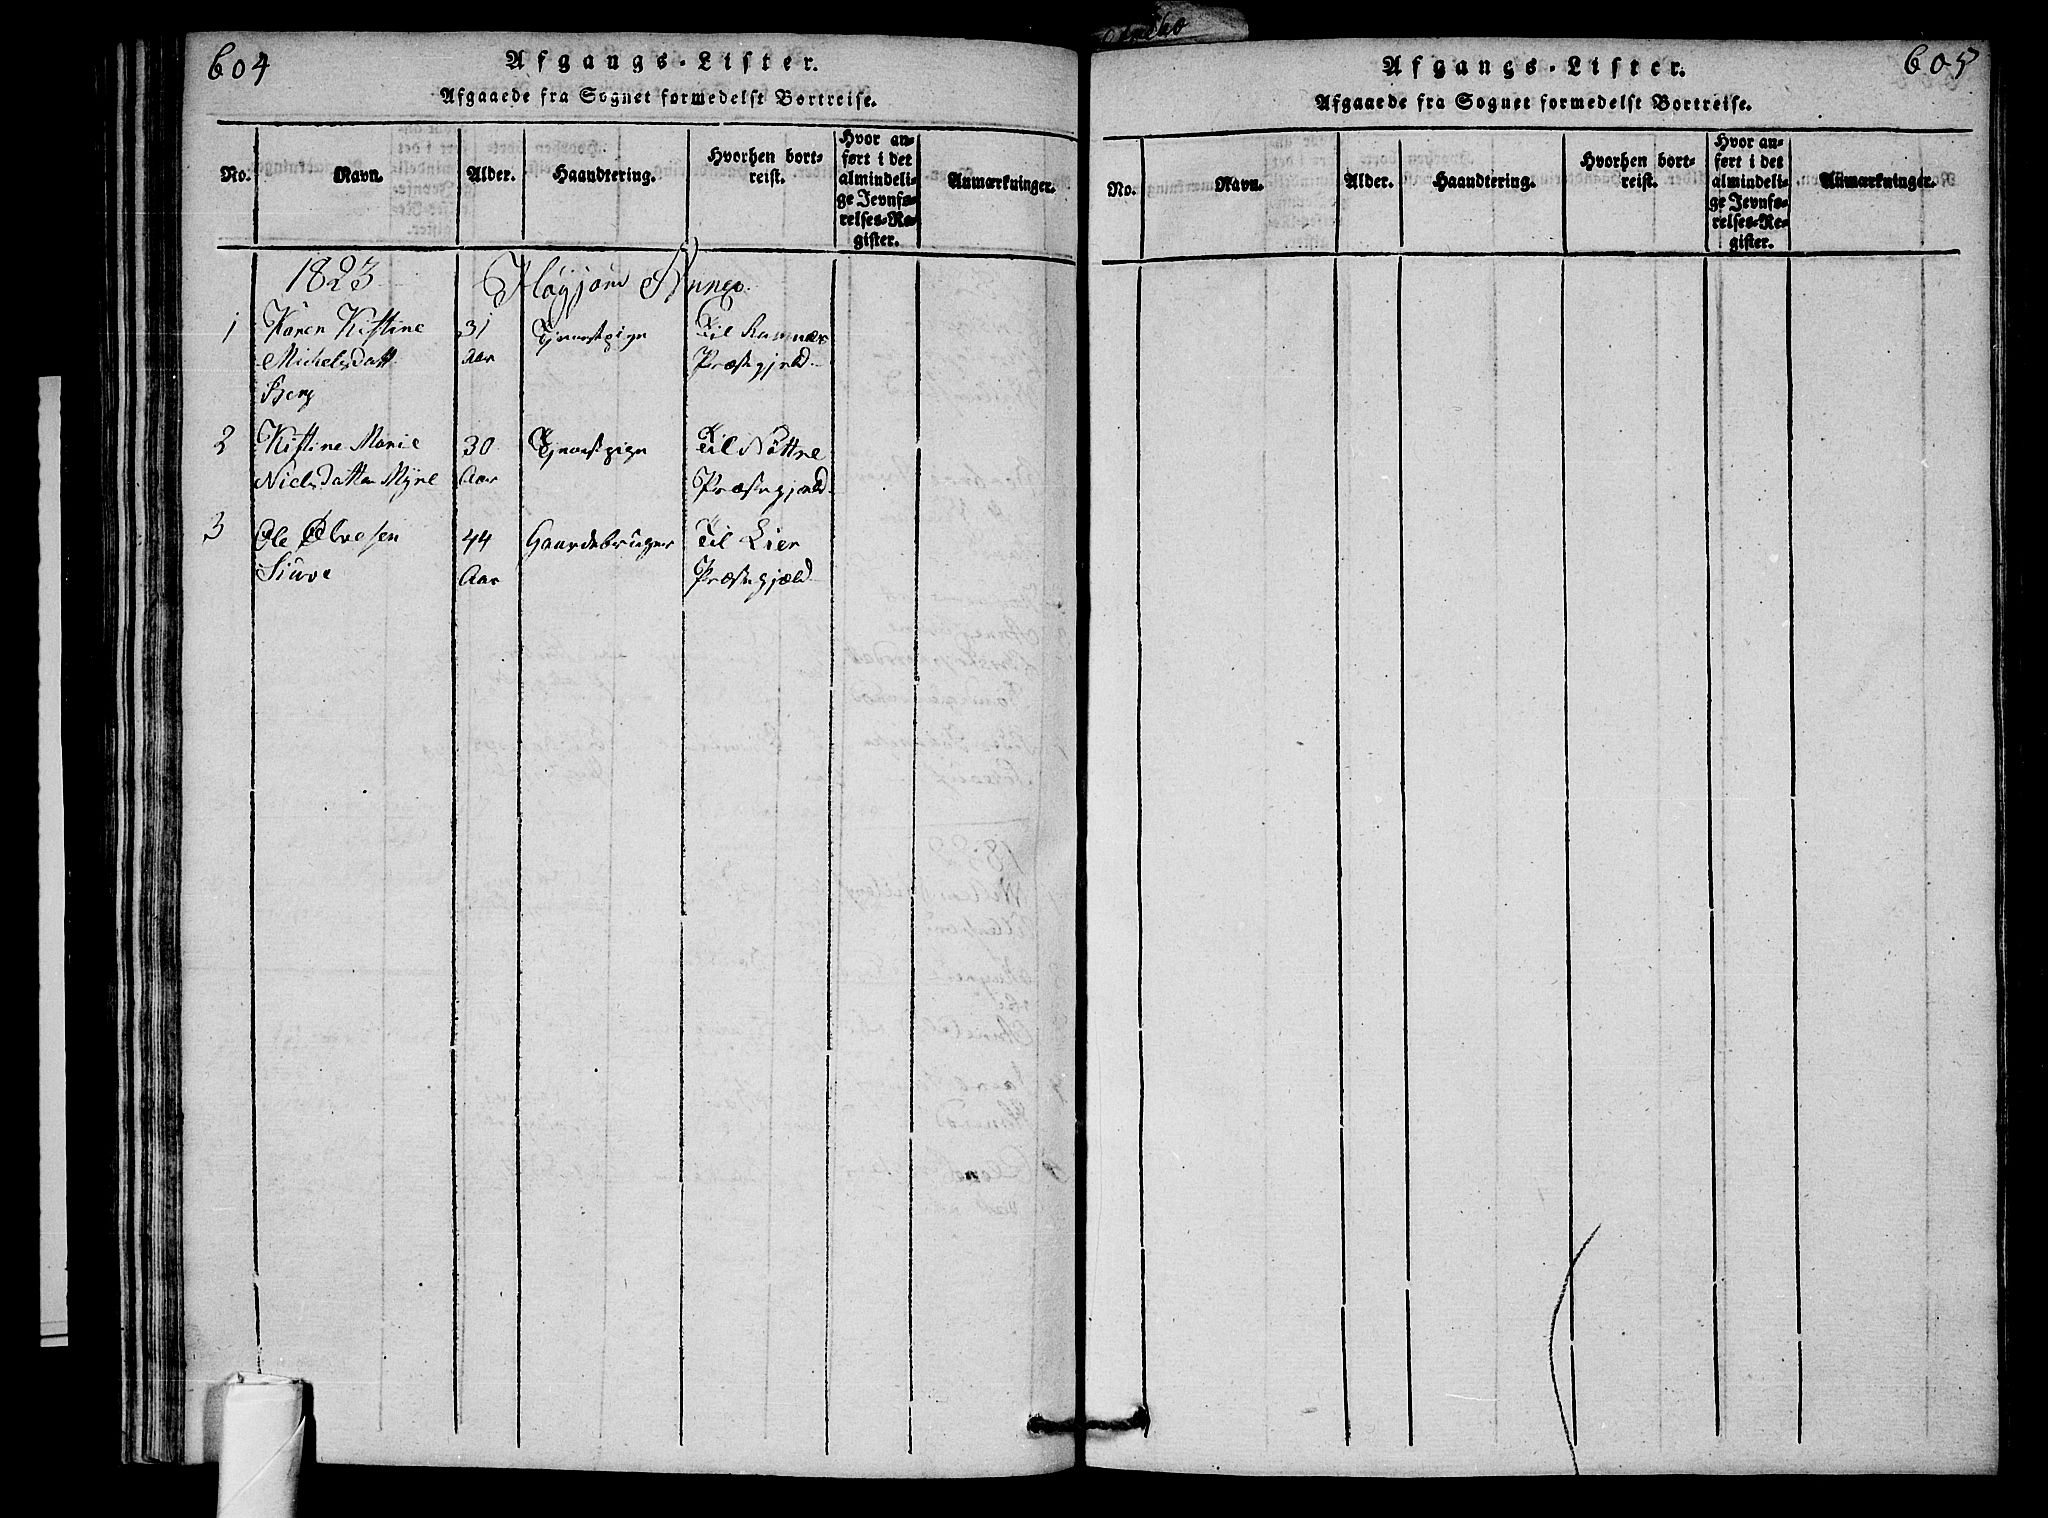 604
Afgangs-Lister.
Afgaaede fra Sognet formedelst Bortreise.
No. Navn. Alder. Haandtering. Hvorhen bortreist. Hvor anført i det almindelige Jevnførelses-Register. Anmærkninger.
1823 Annex.
1 Karen Kistine 31 Tjenestpige Til Ramnæs
Michelsdatt Aar Præstegjeld
Berg
2 Kistine Marie 30 Tjenestpige Til Nøtterø
Nielsdatter Myre Aar Præstegjeld
3 Ole Olvesen 44 Gaardebruger Til Lier
Aar Præstegjæld
605
Afgangs-Lister.
Afgaaede fra Sognet formedelst Bortreise.
No. Navn. Alder. Haandtering. Hvorhen bortreist. Hvor anført i det almindelige Jevnførelses-Register. Anmærkninger.